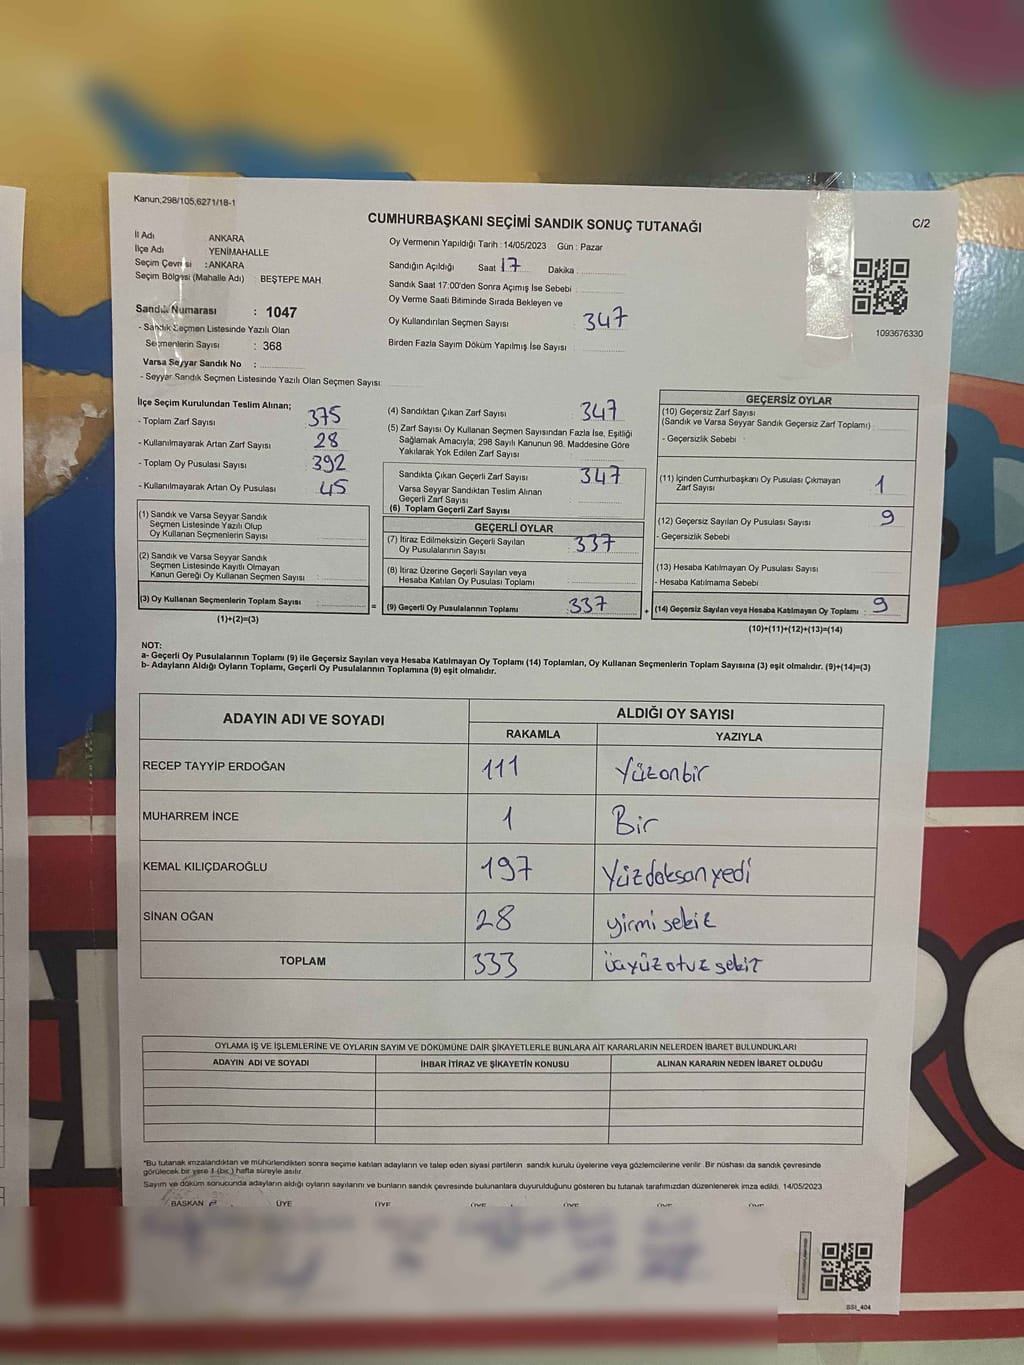 Kanun,298/105,6271/18-1
CUMHURBAŞKANI SEÇİMİ SANDIK SONUÇ TUTANAĞI
C/2
İl Adı ANKARA
İlçe Adı YENİMAHALLE
Seçim Çevresi :ANKARA
Seçim Bölgesi (Mahalle Adı) : BEŞTEPE MAH.
Sandık Numarası : 1047
- Sandık Seçmen Listesinde Yazılı Olan
Seçmenlerin Sayısı : 368
Varsa Seyyar Sandık No :
- Seyyar Sandık Seçmen Listesinde Yazılı Olan Seçmen Sayısı:
Oy Vermenin Yapıldığı Tarih : 14/05/2023 Gün : Pazar
Sandığın Açıldığı Saat 17 Dakika :
Sandık Saat 17:00'den Sonra Açımış İse Sebebi :
Oy Verme Saati Bitiminde Sırada Bekleyen ve
Oy Kullandırılan Seçmen Sayısı : 347
Birden Fazla Sayım Döküm Yapılmış İse Sayısı :
1093676330
İlçe Seçim Kurulundan Teslim Alınan;
- Toplam Zarf Sayısı : 375
- Kullanılmayarak Artan Zarf Sayısı : 28
- Toplam Oy Pusulası Sayısı : 392
- Kullanılmayarak Artan Oy Pusulası : 45
(1) Sandık ve Varsa Seyyar Sandık
Seçmen Listesinde Yazılı Olup
Oy Kullanan Seçmenlerin Sayısı :
(2) Sandık ve Varsa Seyyar Sandık
Seçmen Listesinde Kayıtlı Olmayan
Kanun Gereği Oy Kullanan Seçmen Sayısı :
(3) Oy Kullanan Seçmenlerin Toplam Sayısı :
(1)+(2)=(3)
(4) Sandıktan Çıkan Zarf Sayısı : 347
(5) Zarf Sayısı Oy Kullanan Seçmen Sayısından Fazla İse, Eşitliği
Sağlamak Amacıyla, 298 Sayılı Kanunun 98. Maddesine Göre
Yakılarak Yok Edilen Zarf Sayısı :
Sandıkta Çıkan Geçerli Zarf Sayısı : 347
Varsa Seyyar Sandıktan Teslim Alınan
Geçerli Zarf Sayısı :
(6) Toplam Geçerli Zarf Sayısı :
GEÇERLİ OYLAR
(7) İtiraz Edilmeksizin Geçerli Sayılan
Oy Pusulalarının Sayısı : 337
(8) İtiraz Üzerine Geçerli Sayılan veya
Hesaba Katılan Oy Pusulası Toplamı :
= (9) Geçerli Oy Pusulalarının Toplamı : 337 +
GEÇERSİZ OYLAR
(10) Geçersiz Zarf Sayısı
(Sandık ve Varsa Seyyar Sandık Geçersiz Zarf Toplamı) :
- Geçersizlik Sebebi :
(11) İçinden Cumhurbaşkanı Oy Pusulası Çıkmayan
Zarf Sayısı : 1
(12) Geçersiz Sayılan Oy Pusulası Sayısı : 9
- Geçersizlik Sebebi :
(13) Hesaba Katılmayan Oy Pusulası Sayısı :
- Hesaba Katılmama Sebebi :
(14) Geçersiz Sayılan veya Hesaba Katılmayan Oy Toplamı : 9
(10)+(11)+(12)+(13)=(14)
NOT:
a- Geçerli Oy Pusulalarının Toplamı (9) ile Geçersiz Sayılan veya Hesaba Katılmayan Oy Toplamı (14) Toplamları, Oy Kullanan Seçmenlerin Toplam Sayısına (3) eşit olmalıdır. (9)+(14)=(3)
b- Adayların Aldığı Oyların Toplamı, Geçerli Oy Pusulalarının Toplamına (9) eşit olmalıdır.
ADAYIN ADI VE SOYADI
ALDIĞI OY SAYISI
RAKAMLA YAZIYLA
RECEP TAYYİP ERDOĞAN 111 Yüzonbir
MUHARREM İNCE 1 Bir
KEMAL KILIÇDAROĞLU 197 Yüzdoksanyedi
SİNAN OĞAN 28 yirmi sekiz
TOPLAM 333 üçyüz otuz sekiz
OYLAMA İŞ VE İŞLEMLERİNE VE OYLARIN SAYIM VE DÖKÜMÜNE DAİR ŞİKAYETLERLE BUNLARA AİT KARARLARIN NELERDEN İBARET BULUNDUKLARI
ADAYIN ADI VE SOYADI İHBAR İTİRAZ VE ŞİKAYETİN KONUSU ALINAN KARARIN NEDEN İBARET OLDUĞU
*Bu tutanak imzalandıktan ve mühürlendikten sonra seçime katılan adayların ve talep eden siyasi partilerin sandık kurulu üyelerine veya gözlemcilerine verilir. Bir nüshası da sandık çevresinde
görülecek bir yere 1 (bir) hafta süreyle asılır.
Sayım ve döküm sonucunda adayların aldığı oyların sayılarını ve bunların sandık çevresinde bulunanlara duyurulduğunu gösteren bu tutanak tarafımızdan düzenlenerek imza edildi. 14/05/2023
BAŞKAN ÜYE ÜYE ÜYE ÜYE ÜYE ÜYE
SSI_404